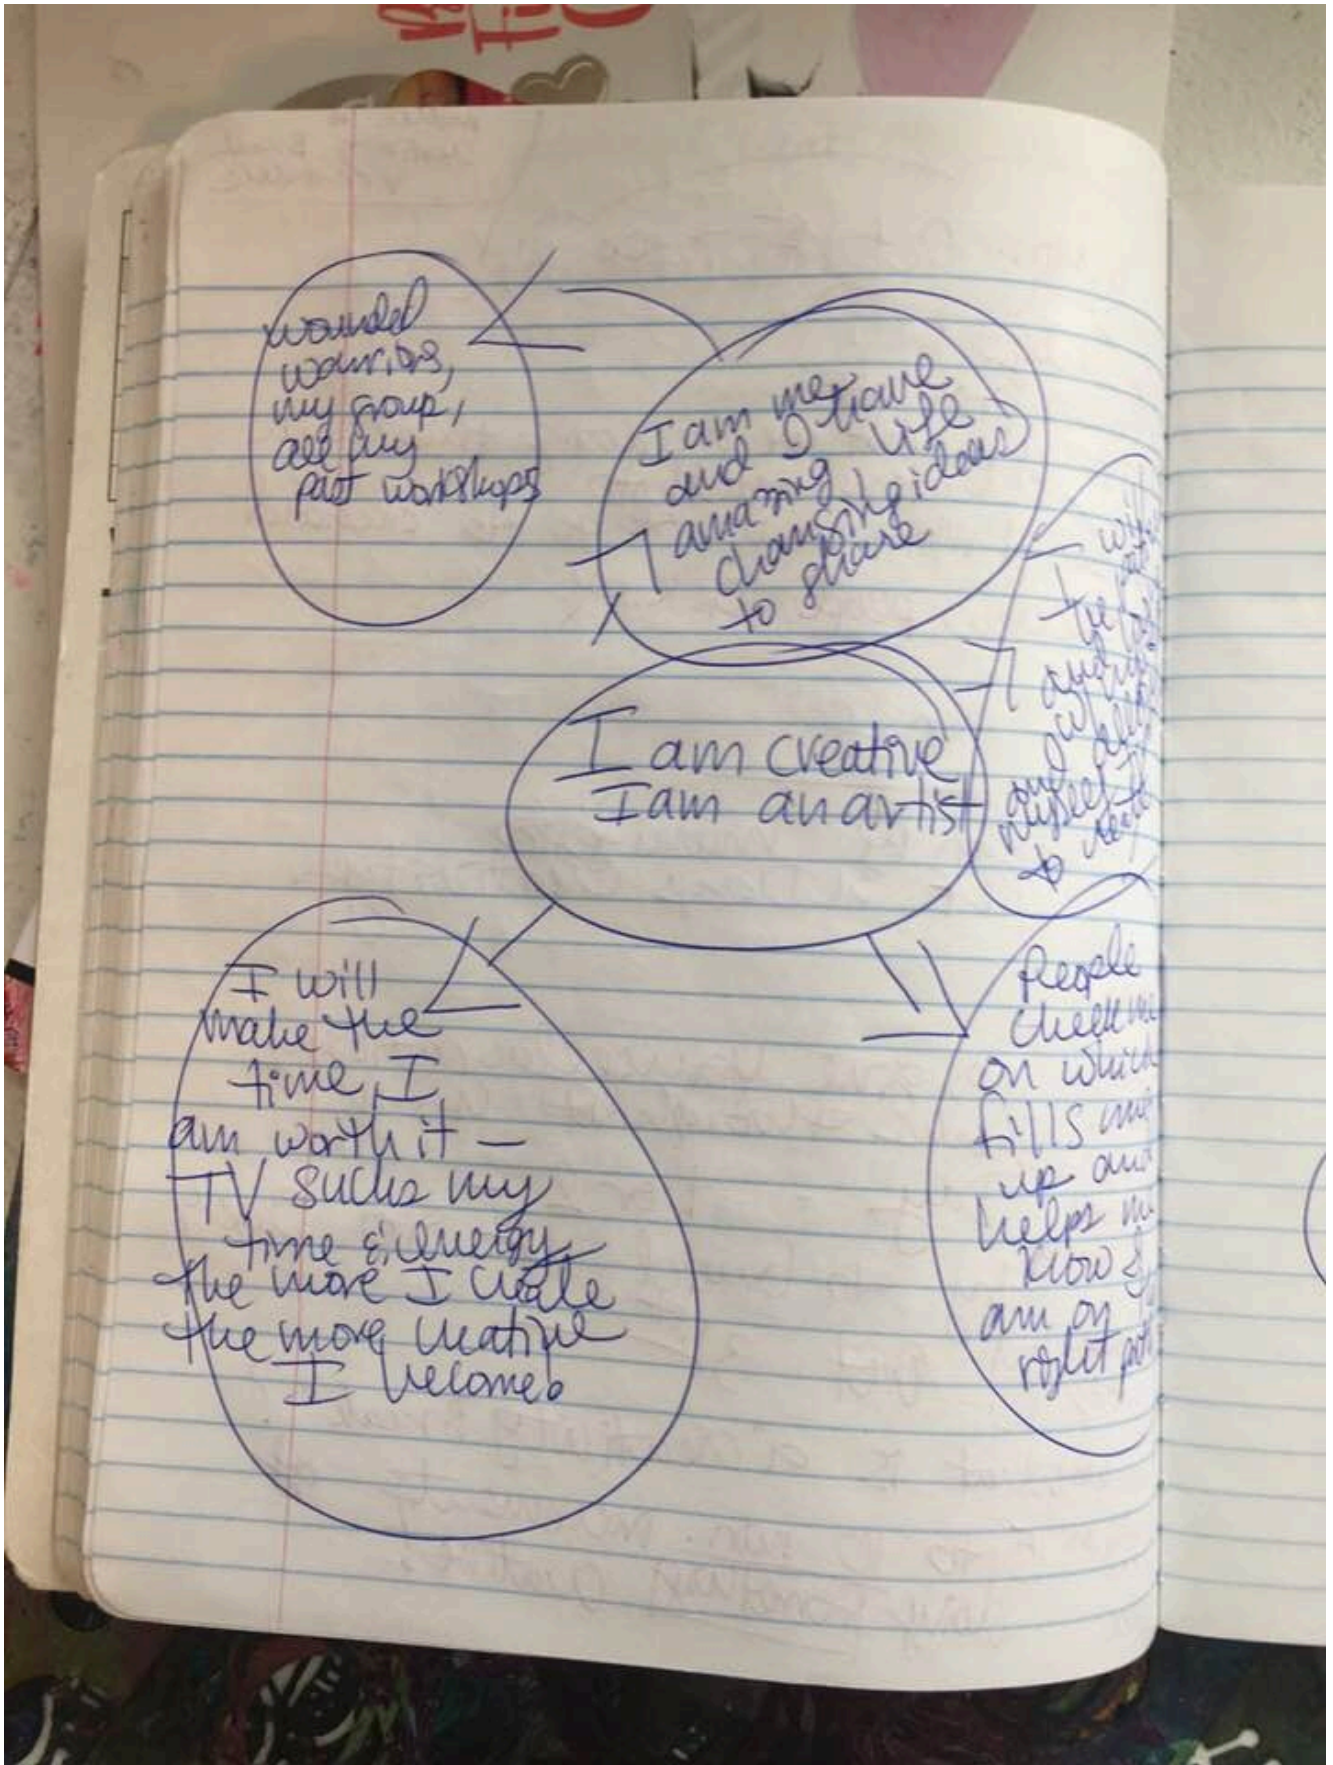 wounded
warriors,
my group,
all my
past workshops
I am me
and I have
amazing, life
changing ideas
to share
I am creative
I am an artist
the
and
I
and
myself
to
I will
make the
time, I
am worth it –
TV sucks my
time & energy
the more I create
the more creative
I become.
People
cheer me
on which
fills me
up and
helps me
know I
am on
right path